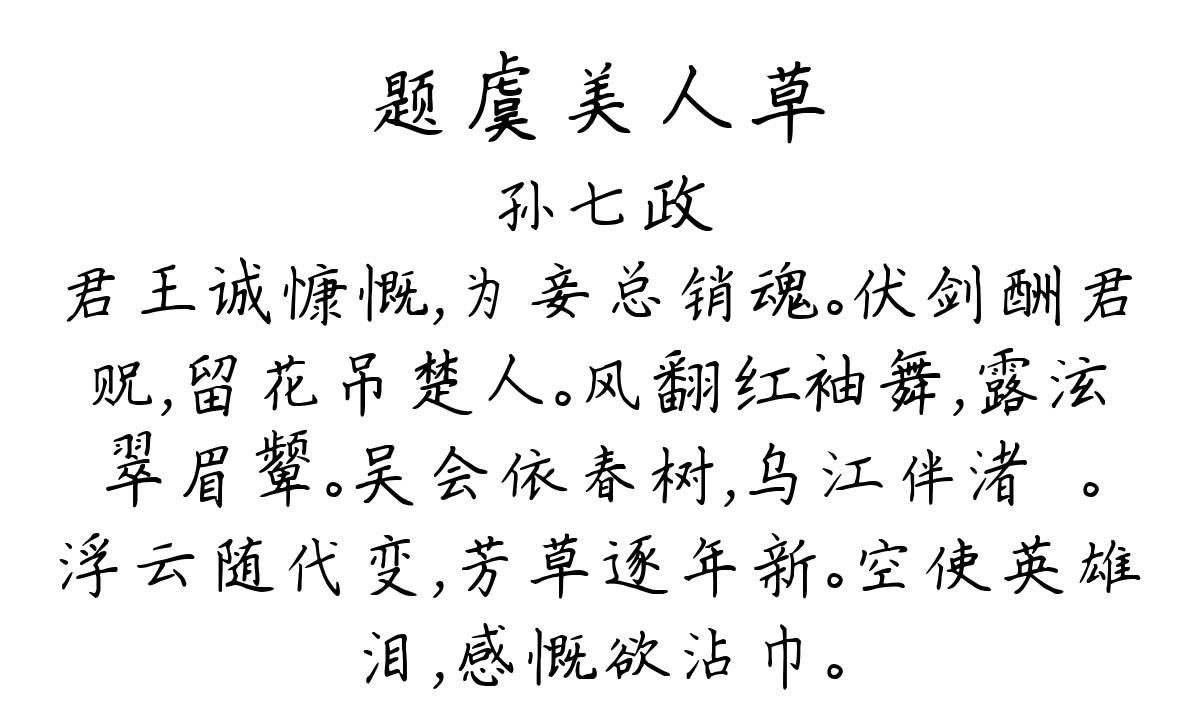 题虞美人草
孙七政
君王诚慷慨,为妾总销魂。伏剑酬君
贶,留花吊楚人。风翻红袖舞,露泫
翠眉颦。吴会依春树,乌江伴渚 。
浮云随代变,芳草逐年新。空使英雄
泪,感慨欲沾巾。